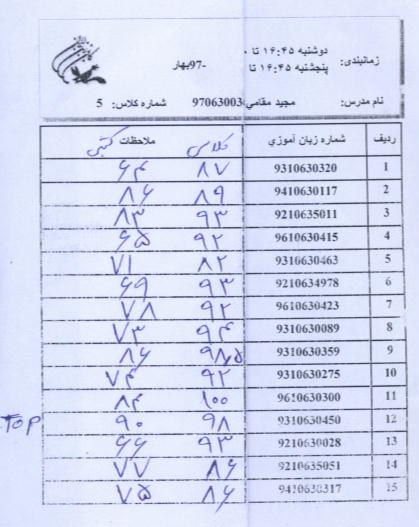 زمانبندی: دوشنبه ۱۶:۴۵ تا
پنجشنبه ۱۶:۴۵ تا
-97بهار
نام مدرس: مجید مقامی 97063003 شماره کلاس: 5
ردیف شماره زبان آموزي کلاسی ملاحظات کتبی
1 9310630320 ۸۷ ۶۴
2 9410630117 ۸۹ ۸۶
3 9210635011 ۹۳ ۸۳
4 9610630415 ۹۲ ۶۵
5 9310630463 ۸۲ ۷۱
6 9210634978 ۹۳ ۶۹
7 9610630423 ۹۲ ۷۸
8 9310630089 ۹۴ ۷۳
9 9310630359 ۹۸٫۵ ۸۶
10 9310630275 ۹۲ ۷۴
11 9610630300 ۱۰۰ ۸۴
12 9310630450 ۹۸ ۹۰ TOP
13 9210630028 ۹۳ ۶۶
14 9210635051 ۸۶ ۷۷
15 9410630317 ۸۶ ۷۵